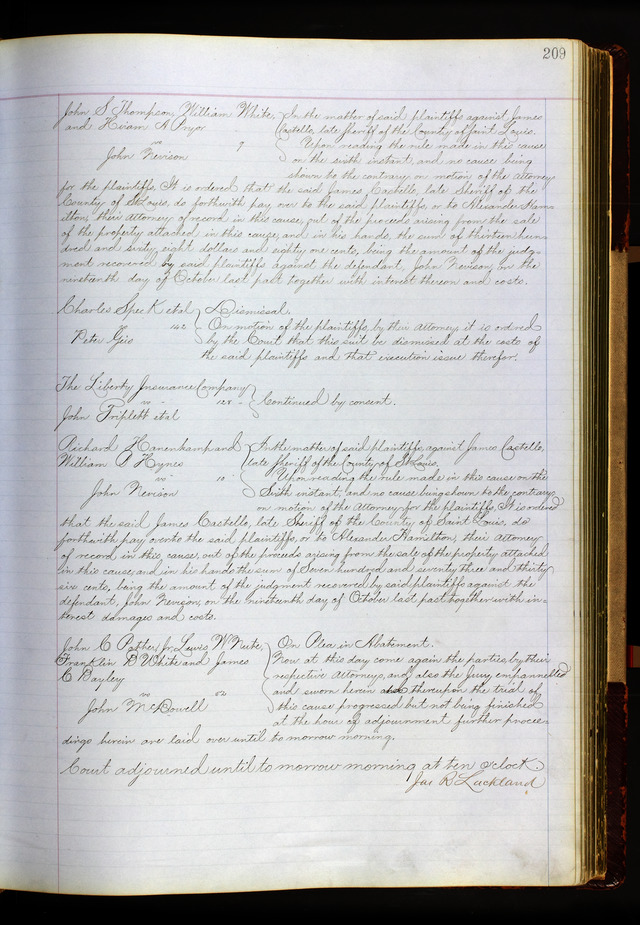 209
John S Thompson, William White, In the matter of said plaintiffs against James
and Hiram A Pryor Castello, late Sheriff of the County of Saint Louis.
vs 9 Upon reading the rule made in this cause
John Nevison on the sixth instant, and no cause being
shown to the contrary on motion of the Attorney
for the plaintiffs, It is ordered that the said James Castello, late Sheriff of the
County of St Louis, do forthwith pay over to the said plaintiffs, or to Alexander Ham-
ilton, their Attorney of record in this cause, out of the proceeds arising from the sale
of the property attached in this cause, and in his hands, the sum of thirteen hun-
dred and sixty eight dollars and eighty one cents, being the amount of the judg-
ment recovered by said plaintiffs against the defendant, John Nevison, on the
nineteenth day of October last past together with interest thereon and costs.
Charles Speck etal Dismissal.
vs 142 On motion of the plaintiffs, by their Attorney, it is ordered
Peter Gis by the Court that this suit be dismissed at the costs of
the said plaintiffs and that execution issue therefor.
The Liberty Insurance Company
vs 128 Continued by consent.
John Triplett etal
Richard Hanenkamp and In the matter of said plaintiffs, against James Castello,
William P Hynes late Sheriff of the County of St Louis.
vs 10 Upon reading the rule made in this cause on the
John Nevison Sixth instant, and no cause being shown to the contrary
on motion of the Attorney for the plaintiffs, It is ordered
that the said James Castello, late Sheriff of the County of Saint Louis, do
forthwith pay over to the said plaintiffs, or to Alexander Hamilton, their Attorney
of record in this cause, out of the proceeds arising from the sale of the property attached
in this cause, and in his hands the sum of Seven hundred and seventy three and thirty
six cents, being the amount of the judgment recovered by said plaintiffs against the
defendant, John Nevison, on the nineteenth day of October last past together with in-
terest damages and costs.
John C Jr Lewis W Nute, On Plea in Abatement.
Franklin D White and James Now at this day come again the parties, by their
C Bayley respective Attorneys, and also the Jury empannelled
vs 82 and sworn herein and thereupon the trial of
John McDowell this cause progressed but not being finished
at the hour of adjournment further procee-
dings herein are laid over until to morrow morning.
Court adjourned until to morrow morning at ten o'clock.
Jas R Lackland